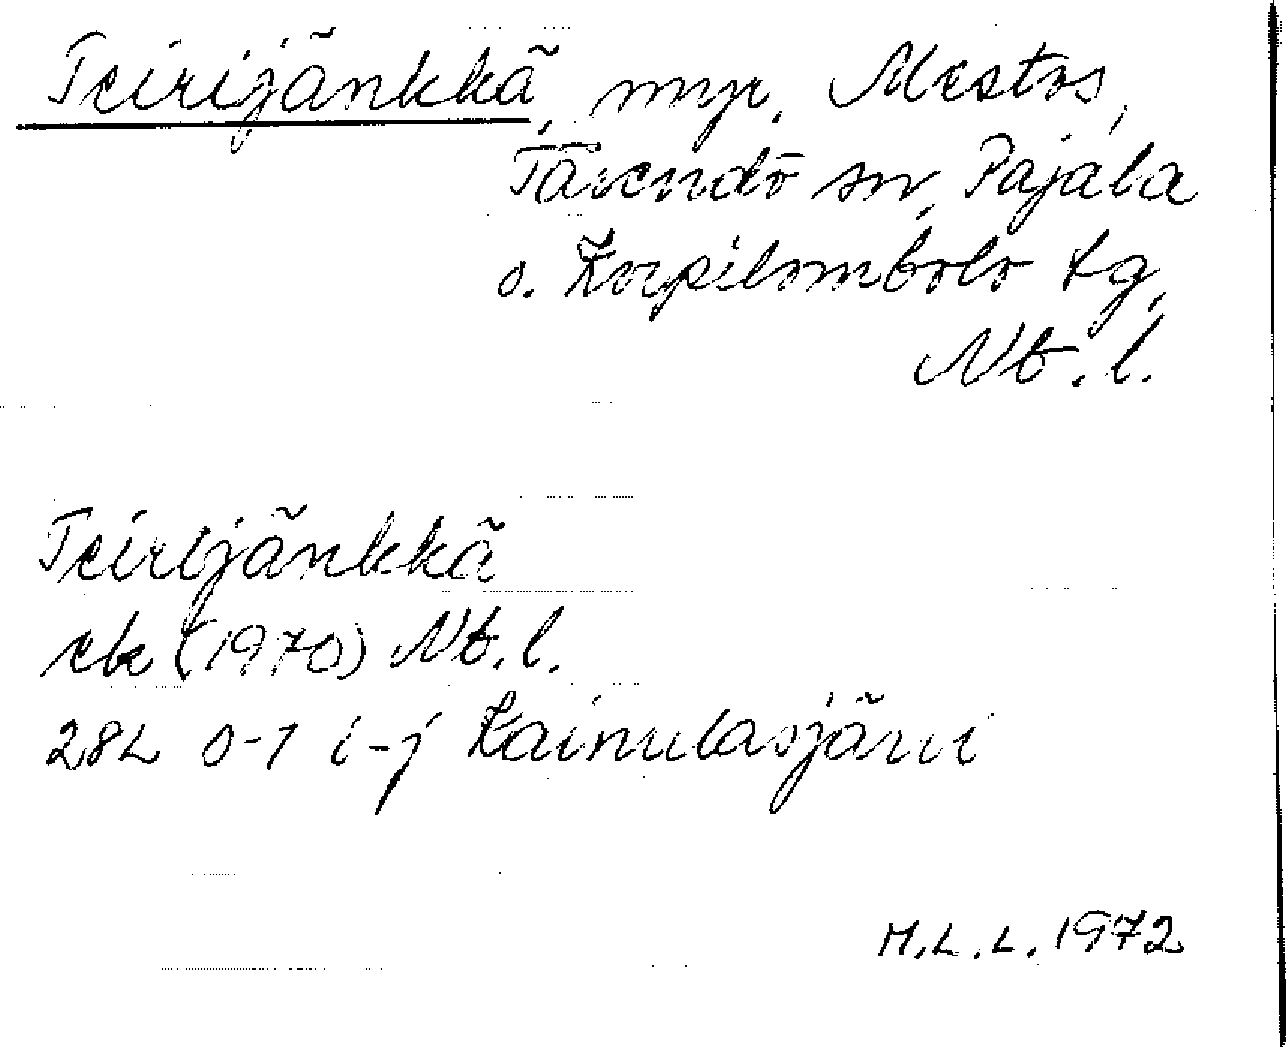 Teirijänkkä, myr, Mestos,
Tärendö sn, Pajala
o. Korpilombolo tg,
Nb. l.
Teirijänkkä
ek (1970) Nb. l.
28L 0-1 i-j Kainulasjärvi
M.L.L. 1972